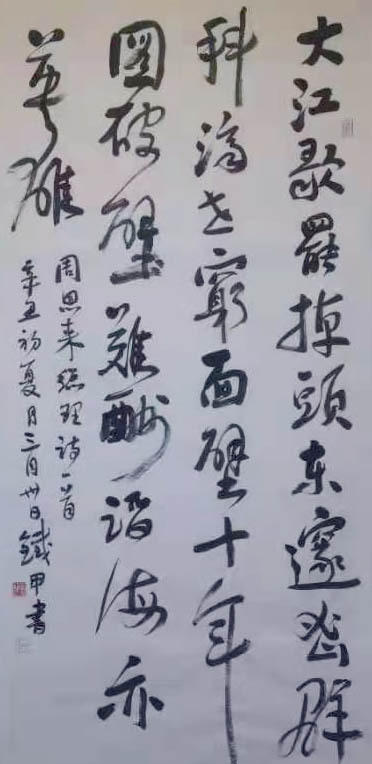 大江歌罷掉頭東邃密群
科濟世窮面壁十年
圖破壁難酬蹈海亦
英雄
周恩来總理詩一首
辛丑初夏月三月卅日鐵甲書